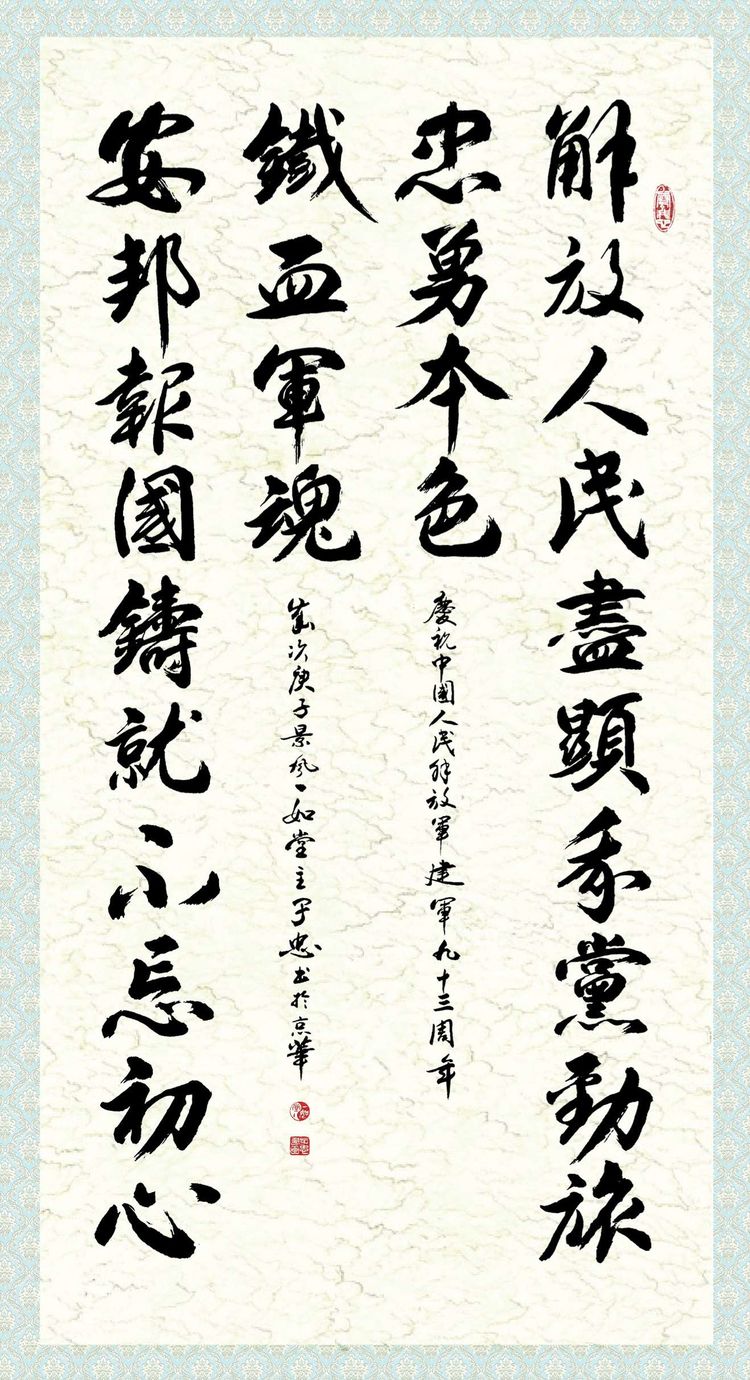 解放人民盡顯我黨勁旅
忠勇本色
慶祝中國人民解放軍建軍九十三周年
鐵血軍魂
歲次庚子景風一如堂主忠书於京華
安邦報國鑄就不忘初心